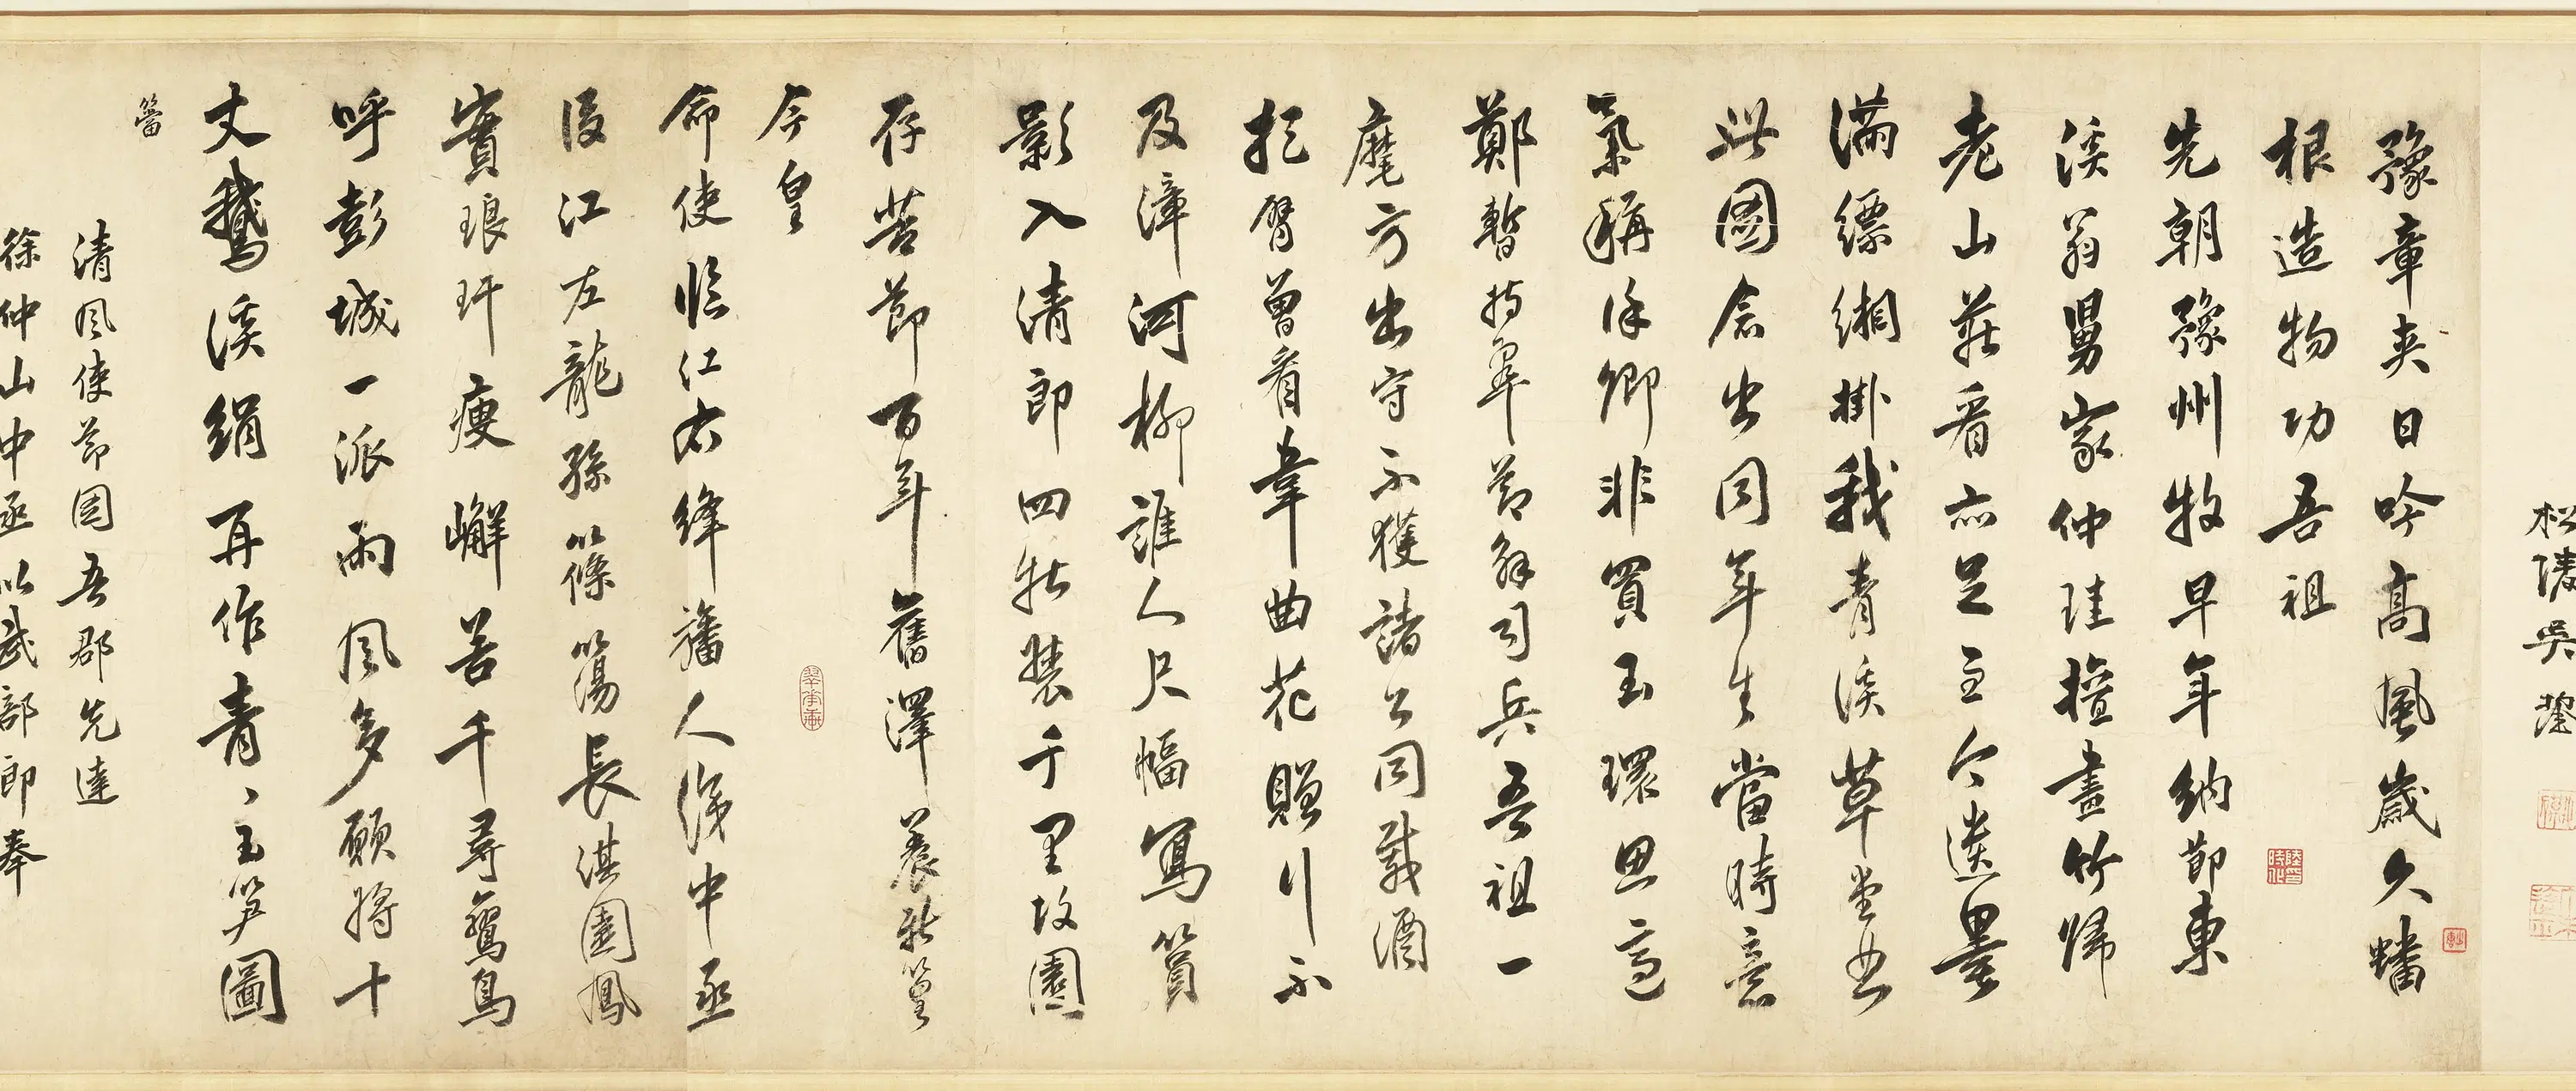 松陵吳鋆
豫章夾日吟高風歲久蟠
根造物功吾祖
先朝豫州牧早年納節東
溪翁舅家仲珪擅畫竹歸
老山莊看亦足至今遺墨
滿縹緗掛我青溪草堂曲
此圖念出同年生當時意
氣稱徐卿非買玉環思適
鄭暫持犀節解司兵吾祖一
麾方出守不獲諸公同載酒
把臂曾看韋曲花贈行不
及漳河柳誰人尺幅寫篔
影入清郎四牡裝千里故園
存苦節百年舊澤養新篁
今皇
命使臨江右絳旛人識中丞
後江左龍孫篠簜長淇園鳳
實琅玕瘦嶰谷千尋鸞鳥
呼彭城一派雨風多願將十
丈鵝溪絹再作青青玉筍圖
篔簹
清風使節圖吾郡先達
徐仲山中丞以武部郎奉